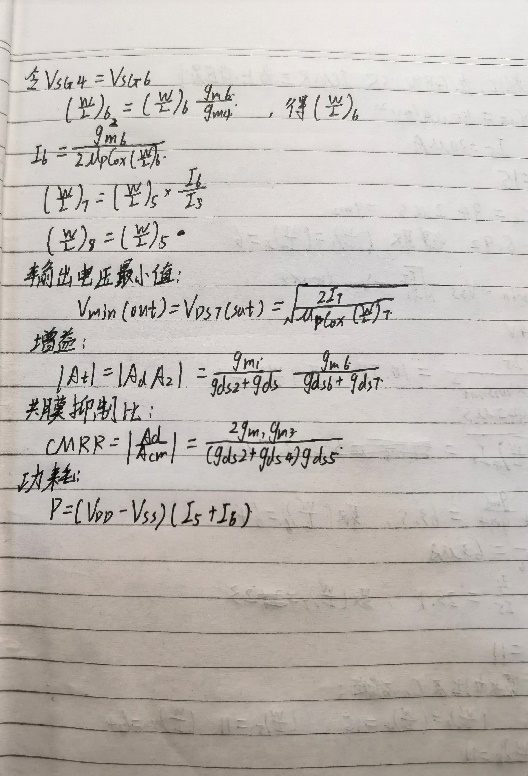 令 VSG4 = VSG6
(W/L)6 = (W/L)6 gm6/gm4 , 得 (W/L)6
I6 = gm6²/2μpCox(W/L)6
(W/L)7 = (W/L)5 × I6/I5
(W/L)8 = (W/L)5
输出电压最小值:
Vmin(out) = VDS7(sat) = √(2I7/μpCox(W/L)7)
增益:
|At| = |Ad A2| = gm1/(gds2+gds) gm6/(gds6+gds7)
共膜抑制比:
CMRR = |Ad/Acm| = 2gm1gm3/(gds2+gds4)gds5
功耗:
P=(VDD-VSS)(I5+I6)